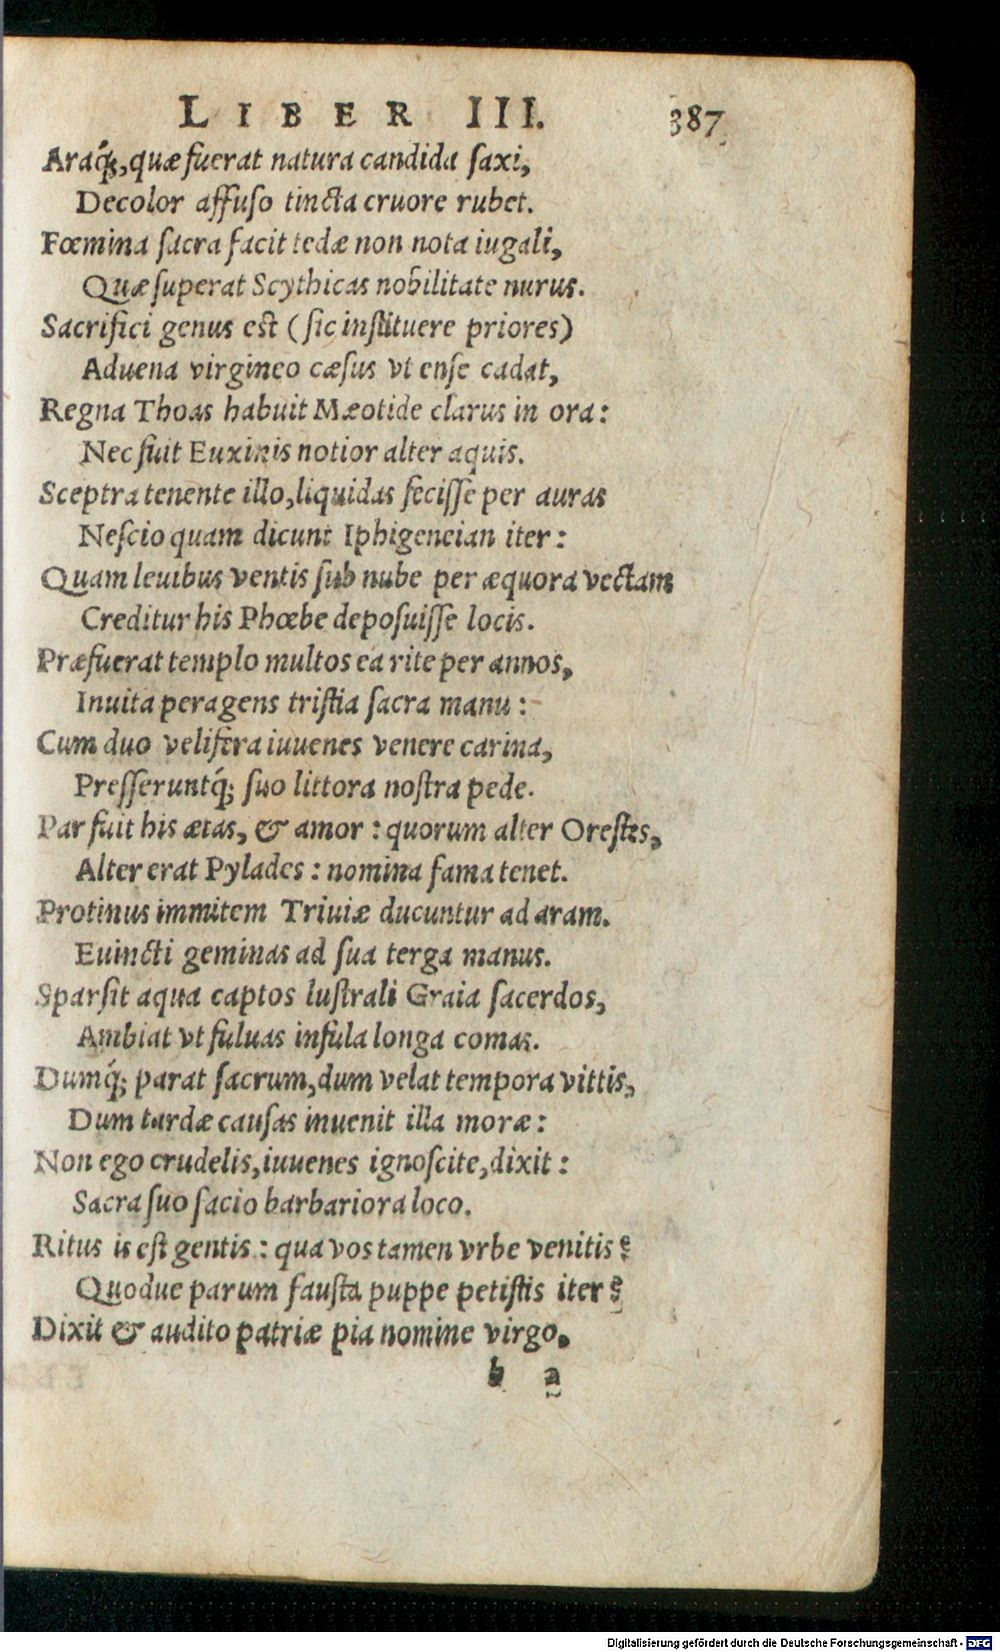 LIBER III. 387
Araq́;, quæ fuerat natura candida ſaxi,
Decolor affuſo tincta cruore rubet.
Fœmina ſacra facit tedæ non nota iugali,
Quæ ſuperat Scythicas nobilitate nurus.
Sacrifici genus eſt (ſic inſtituere priores)
Aduena virgineo cæſus vt enſe cadat,
Regna Thoas habuit Mæotide clarus in ora:
Nec fuit Euxinis notior alter aquis.
Sceptra tenente illo, liquidas feciſſe per auras
Neſcio quam dicunt Iphigeneian iter:
Quam leuibus ventis ſub nube per æquora vectam
Creditur his Phœbe depoſuiſſe locis.
Præfuerat templo multos ea rite per annos,
Inuita peragens triſtia ſacra manu:
Cum duo velifera iuuenes venere carina,
Preſſeruntq́; ſuo littora noſtra pede.
Par fuit his ætas, & amor: quorum alter Oreſtes,
Alter erat Pylades: nomina fama tenet.
Protinus immitem Triuiæ ducuntur ad aram.
Euincti geminas ad ſua terga manus.
Sparſit aqua captos luſtrali Graia ſacerdos,
Ambiat vt fuluas infula longa comas.
Dumq́; parat ſacrum, dum velat tempora vittis,
Dum tardæ cauſas inuenit illa moræ:
Non ego crudelis, iuuenes ignoſcite, dixit:
Sacra ſuo facio barbariora loco.
Ritus is eſt gentis: qua vos tamen vrbe venitis?
Quodue parum fauſta puppe petiſtis iter?
Dixit & audito patriæ pia nomine virgo,
b a
Digitalisierung gefördert durch die Deutsche Forschungsgemeinschaft - DFG